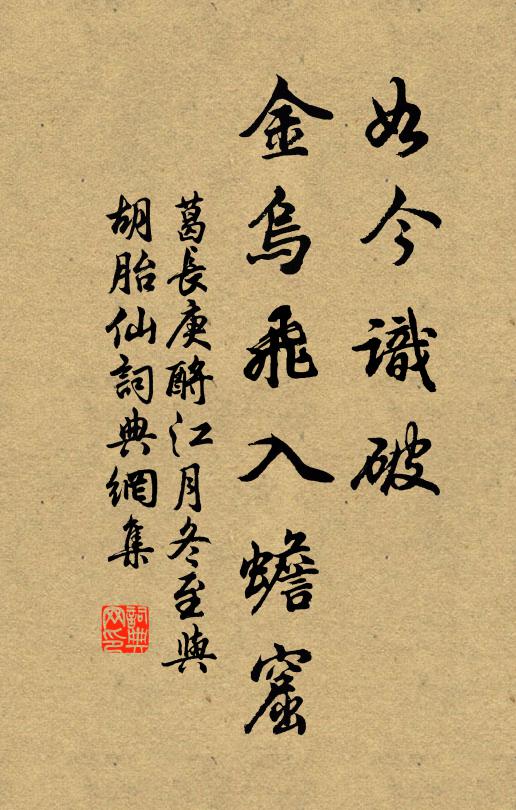 如今識破
金烏飛入蟾窟
葛長庚酹江月冬至與
胡胎仙詞典網集
詞典網印